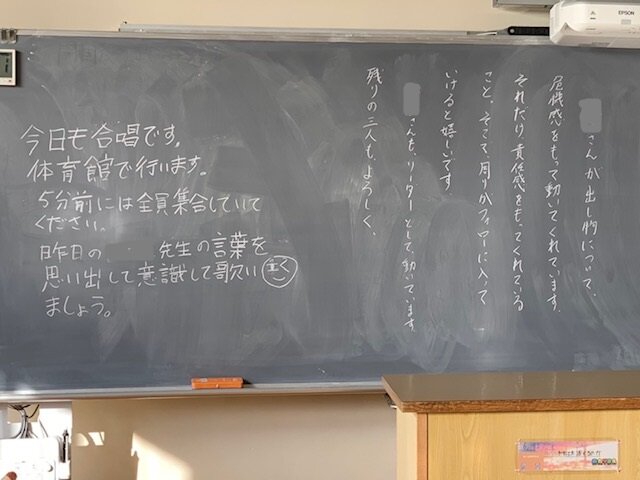 今日も合唱です。
体育館で行います。
5分前には全員集合していて
ください。
昨日の 先生の言葉を
思い出して意識して歌い
ましょう。
さんが出し物について、
危機感をもって動いてくれています。
それだけ責任感をもってくれている
こと。そこで周りがフォローに入って
いけると嬉しいです
さんも、リーダーとして動いています。
残りの三人も、よろしく。
EPSON